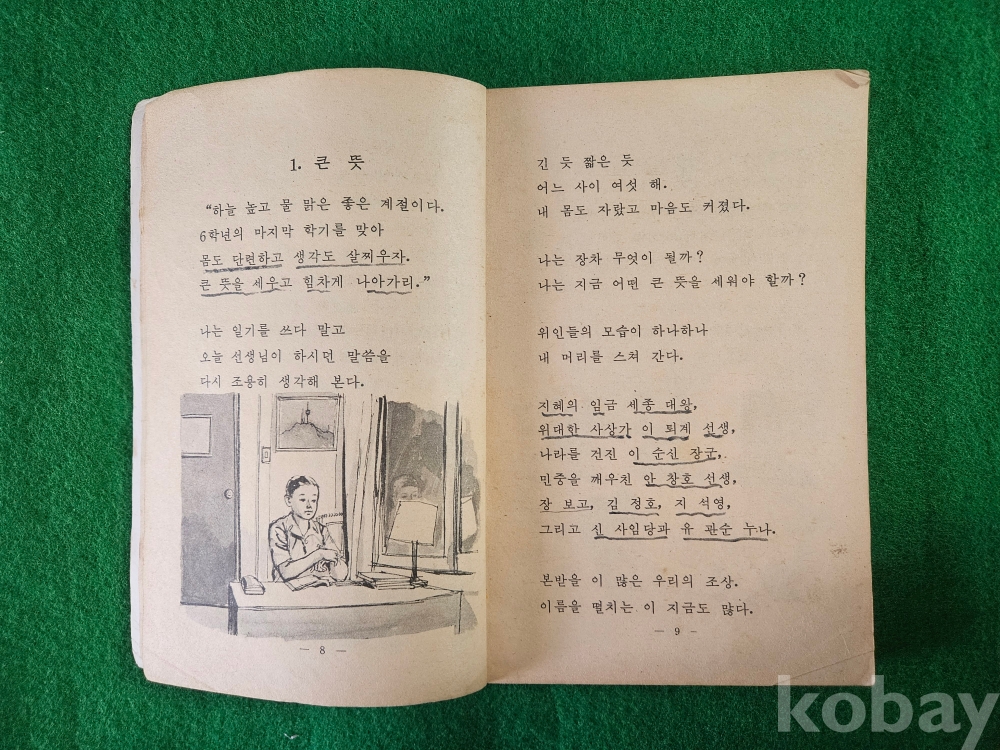 1. 큰 뜻
“하늘 높고 물 맑은 좋은 계절이다.
6학년의 마지막 학기를 맞아
몸도 단련하고 생각도 살찌우자.
큰 뜻을 세우고 힘차게 나아가리.”
나는 일기를 쓰다 말고
오늘 선생님이 하시던 말씀을
다시 조용히 생각해 본다.
— 8 —
긴 듯 짧은 듯
어느 사이 여섯 해.
내 몸도 자랐고 마음도 커졌다.
나는 장차 무엇이 될까?
나는 지금 어떤 큰 뜻을 세워야 할까?
위인들의 모습이 하나하나
내 머리를 스쳐 간다.
지혜의 임금 세종 대왕,
위대한 사상가 이 퇴계 선생,
나라를 건진 이 순신 장군,
민중을 깨우친 안 창호 선생,
장 보고, 김 정호, 지 석영,
그리고 신 사임당과 유 관순 누나.
본받을 이 많은 우리의 조상.
이름을 떨치는 이 지금도 많다.
— 9 —
kobay